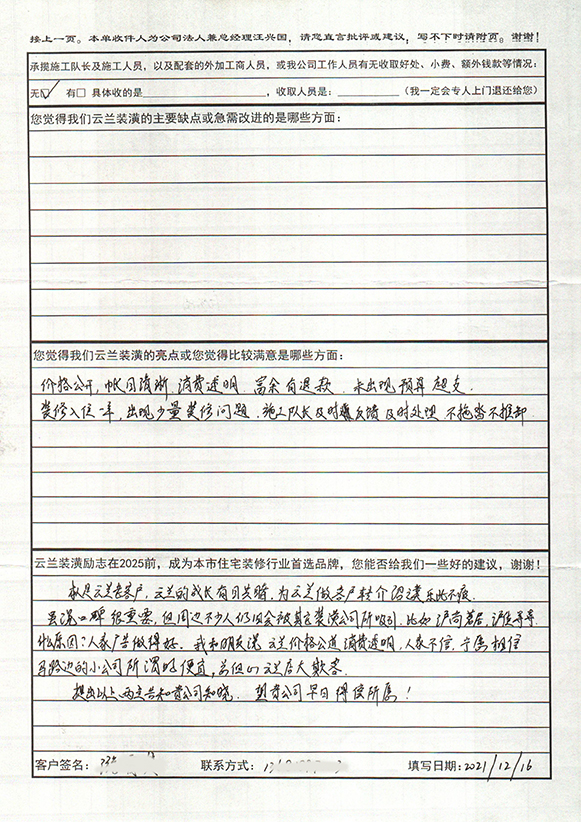 接上一页。本单收件人为公司法人兼总经理汪兴国，请您直言批评或建议，写不下时请附页。谢谢！
承揽施工队长及施工人员，以及配套的外加工商人员，或我公司工作人员有无收取好处、小费、额外钱款等情况：
无☑ 有□ 具体收的是＿＿＿＿＿＿，收取人员是：＿＿＿＿（我一定会专人上门退还给您）
您觉得我们云兰装潢的主要缺点或急需改进的是哪些方面：
您觉得我们云兰装潢的亮点或您觉得比较满意是哪些方面：
价格公开，帐目清晰 消费透明 富余有退款 未出现预算超支
装修入住一年，出现少量装修问题，施工队长及时反馈及时处理 不拖沓不推卸
云兰装潢励志在2025前，成为本市住宅装修行业首选品牌，您能否给我们一些好的建议，谢谢！
云兰老客户，云兰的成长有目共睹，为云兰做客户转介绍乐此不疲
虽说口碑很重要，但周边不少人仍旧会被其它装潢公司所吸引，比如沪尚茗居，沪佳等等
什么原因？人家广告做得好。我和朋友说云兰价格公道 消费透明，人家不信 宁愿相信
马路边的小公司所谓的便宜，
提出以上两点告知贵公司知晓 望贵公司早日得偿所愿！
客户签名： 联系方式： 填写日期：2021/12/16